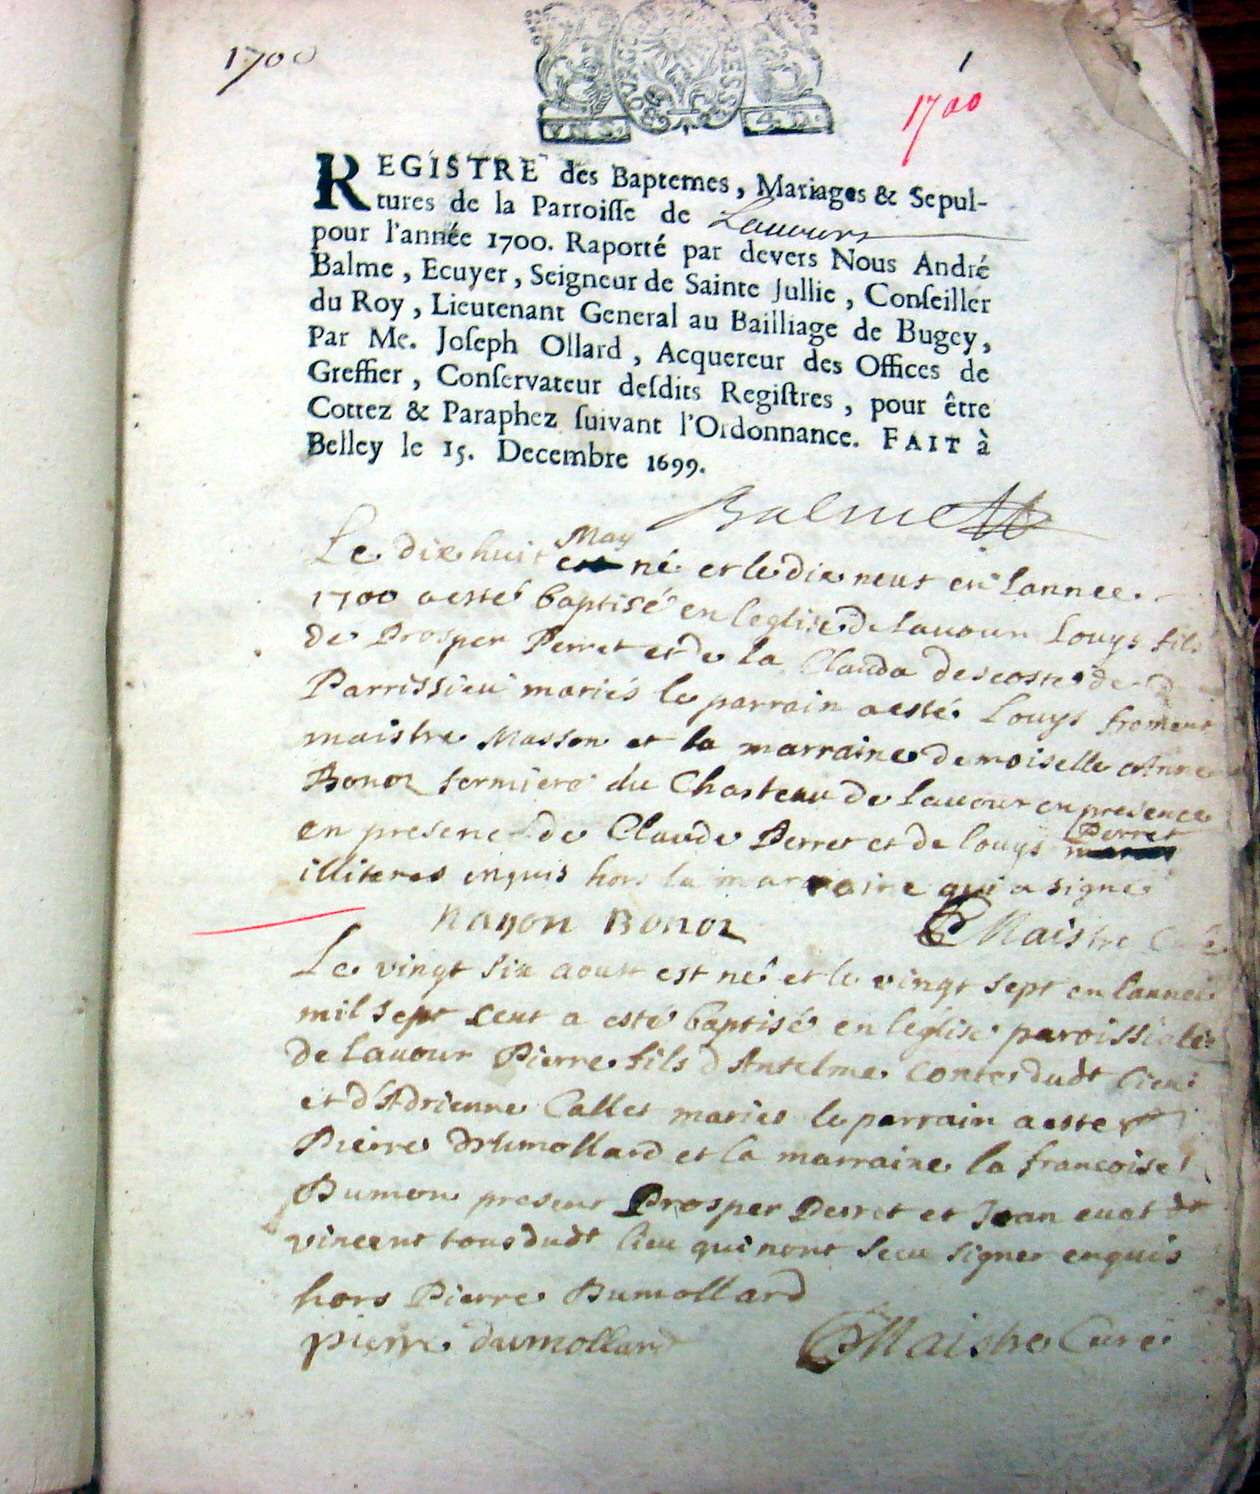 1700
1
1700
REGISTRE des Baptemes, Mariages & Sepul-
tures de la Parroisse de Lavours
pour l'année 1700. Raporté par devers Nous André
Balme, Ecuyer, Seigneur de Sainte Jullie, Conseiller
du Roy, Lieutenant General au Bailliage de Bugey,
Par Me. Joseph Ollard, Acquereur des Offices de
Greffier, Conservateur desdits Registres, pour être
Cottez & Paraphez suivant l'Ordonnance. FAIT à
Belley le 15. Decembre 1699.
Balme
May
Le dix huit est né et le dix neuf en lannee
1700 a esté baptisé en leglise de lauour Louys fils
de Prosper Perret et de la Clauda descoste de
Parrissieu mariés le parrain a esté Louys froment
maistre Masson et la marraine demoiselle Anne
Bonoz fermiere du Chasteau de lauour en presence
en presence de Claude Perret et de louys Perret
illiteres enquis hors la marraine qui a signé
Nanon Bonoz Maistre Curé
Le vingt six aoust est né et le vingt sept en lannee
mil sept cent a esté baptisé en léglise paroissiale
de lauour Pierre fils d Antelme Conte dudt lieu
et d'Adrienne Callet mariés le parrain a esté
Pierre Dumollard et la marraine la francoise
Dumon present Prosper Perret et Jean
vincent tous dudt lieu qui nont sceu signer enquis
hors Pierre Dumollard
pierre dumollard Maistre Curé